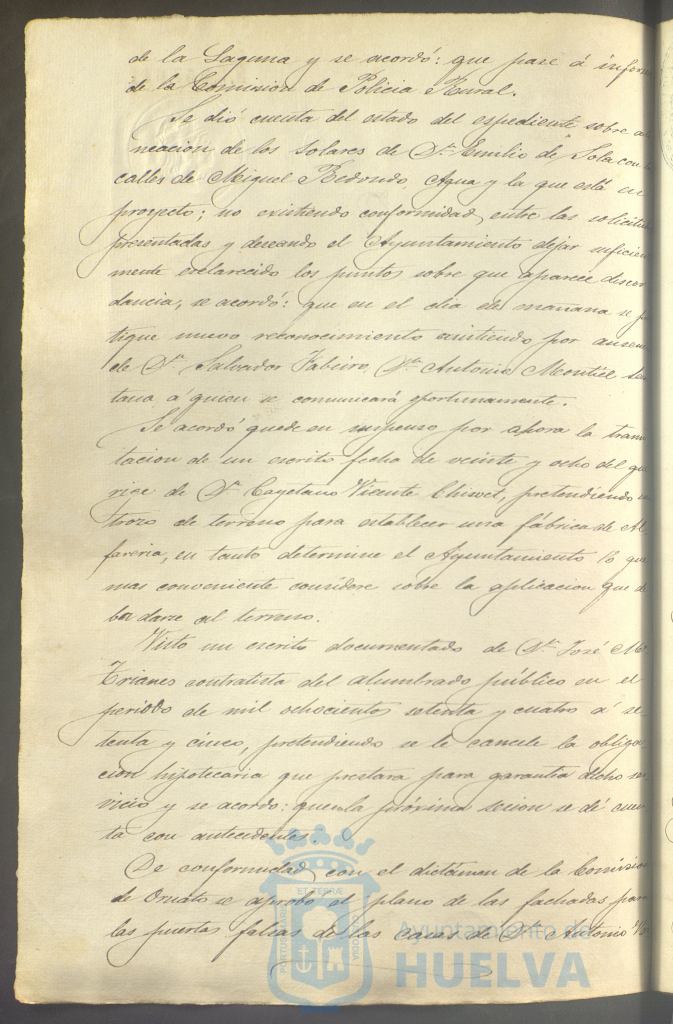 de la Laguna y se acordó: que pase á inform
de la Comision de Policia Rural.
Se dió cuenta del estado del espediente sobre a
neacion de los solares de Dn. Emilio de Sola con
calles de Miguel Redondo Agua y la que está en
proyecto; no existiendo conformidad entre las solicitu
presentadas y deseando el Ayuntamiento dejar suficien
mente esclarecido los puntos sobre que aparece discor
dancia, se acordó: que en el dia de mañana se
tique nuevo reconocimiento asistiendo por ausen
de Dn. Salvador Dn. Antonio Montiel
tana á quien se comunicará oportunamente.
Se acordó quede en suspenso por ahora la trami
tacion de un escrito fecha de veinte y ocho del que
rige de Dn. Cayetano Vicente pretendiendo
trozo de terreno para establecer una fábrica de Al
fareria, en tanto determine el Ayuntamiento lo que
mas conveniente considere sobre la aplicacion que de
ba darse al terreno.
Visto un escrito documentado de Dn. José Ma.
Trianes contratista del alumbrado público en el
periodo de mil ochocientos setenta y cuatro á se
tenta y cinco, pretendiendo se le cancele la obliga
cion hipotecaria que prestara para garantia dicho ser
vicio y se acordo: que en la próxima secion se dé cuen
ta con antecedentes.
De conformidad con el dictámen de la Comision
de Ornato se aprobó el plano de las fachadas para
las puertas falsas de las casas de Dn. Antonio
ET TERRÆ
CUSTODIA
PORTUS MARIS
Ayuntamiento de
HUELVA